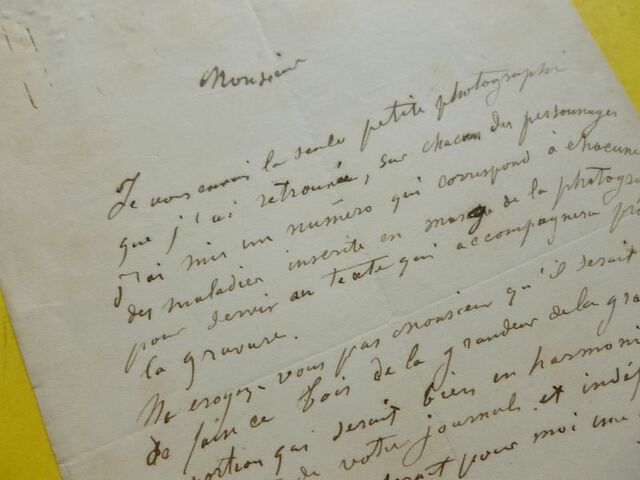 Monsieur
Je vous envois la seule petite photographi
que j'ai retrouvée, sur chacun des personnages
J'ai mis un numéro qui correspond à chacune
des maladies inscrite en marge de la photogra
pour servir au texte qui accompagnera
la gravure.
Ne croyez-vous pas monsieur qu'il serait
de faire ce bois de la grandeur de la gra
portion qui serait bien en harmoni
de votre journal. et indé
serait pour moi une